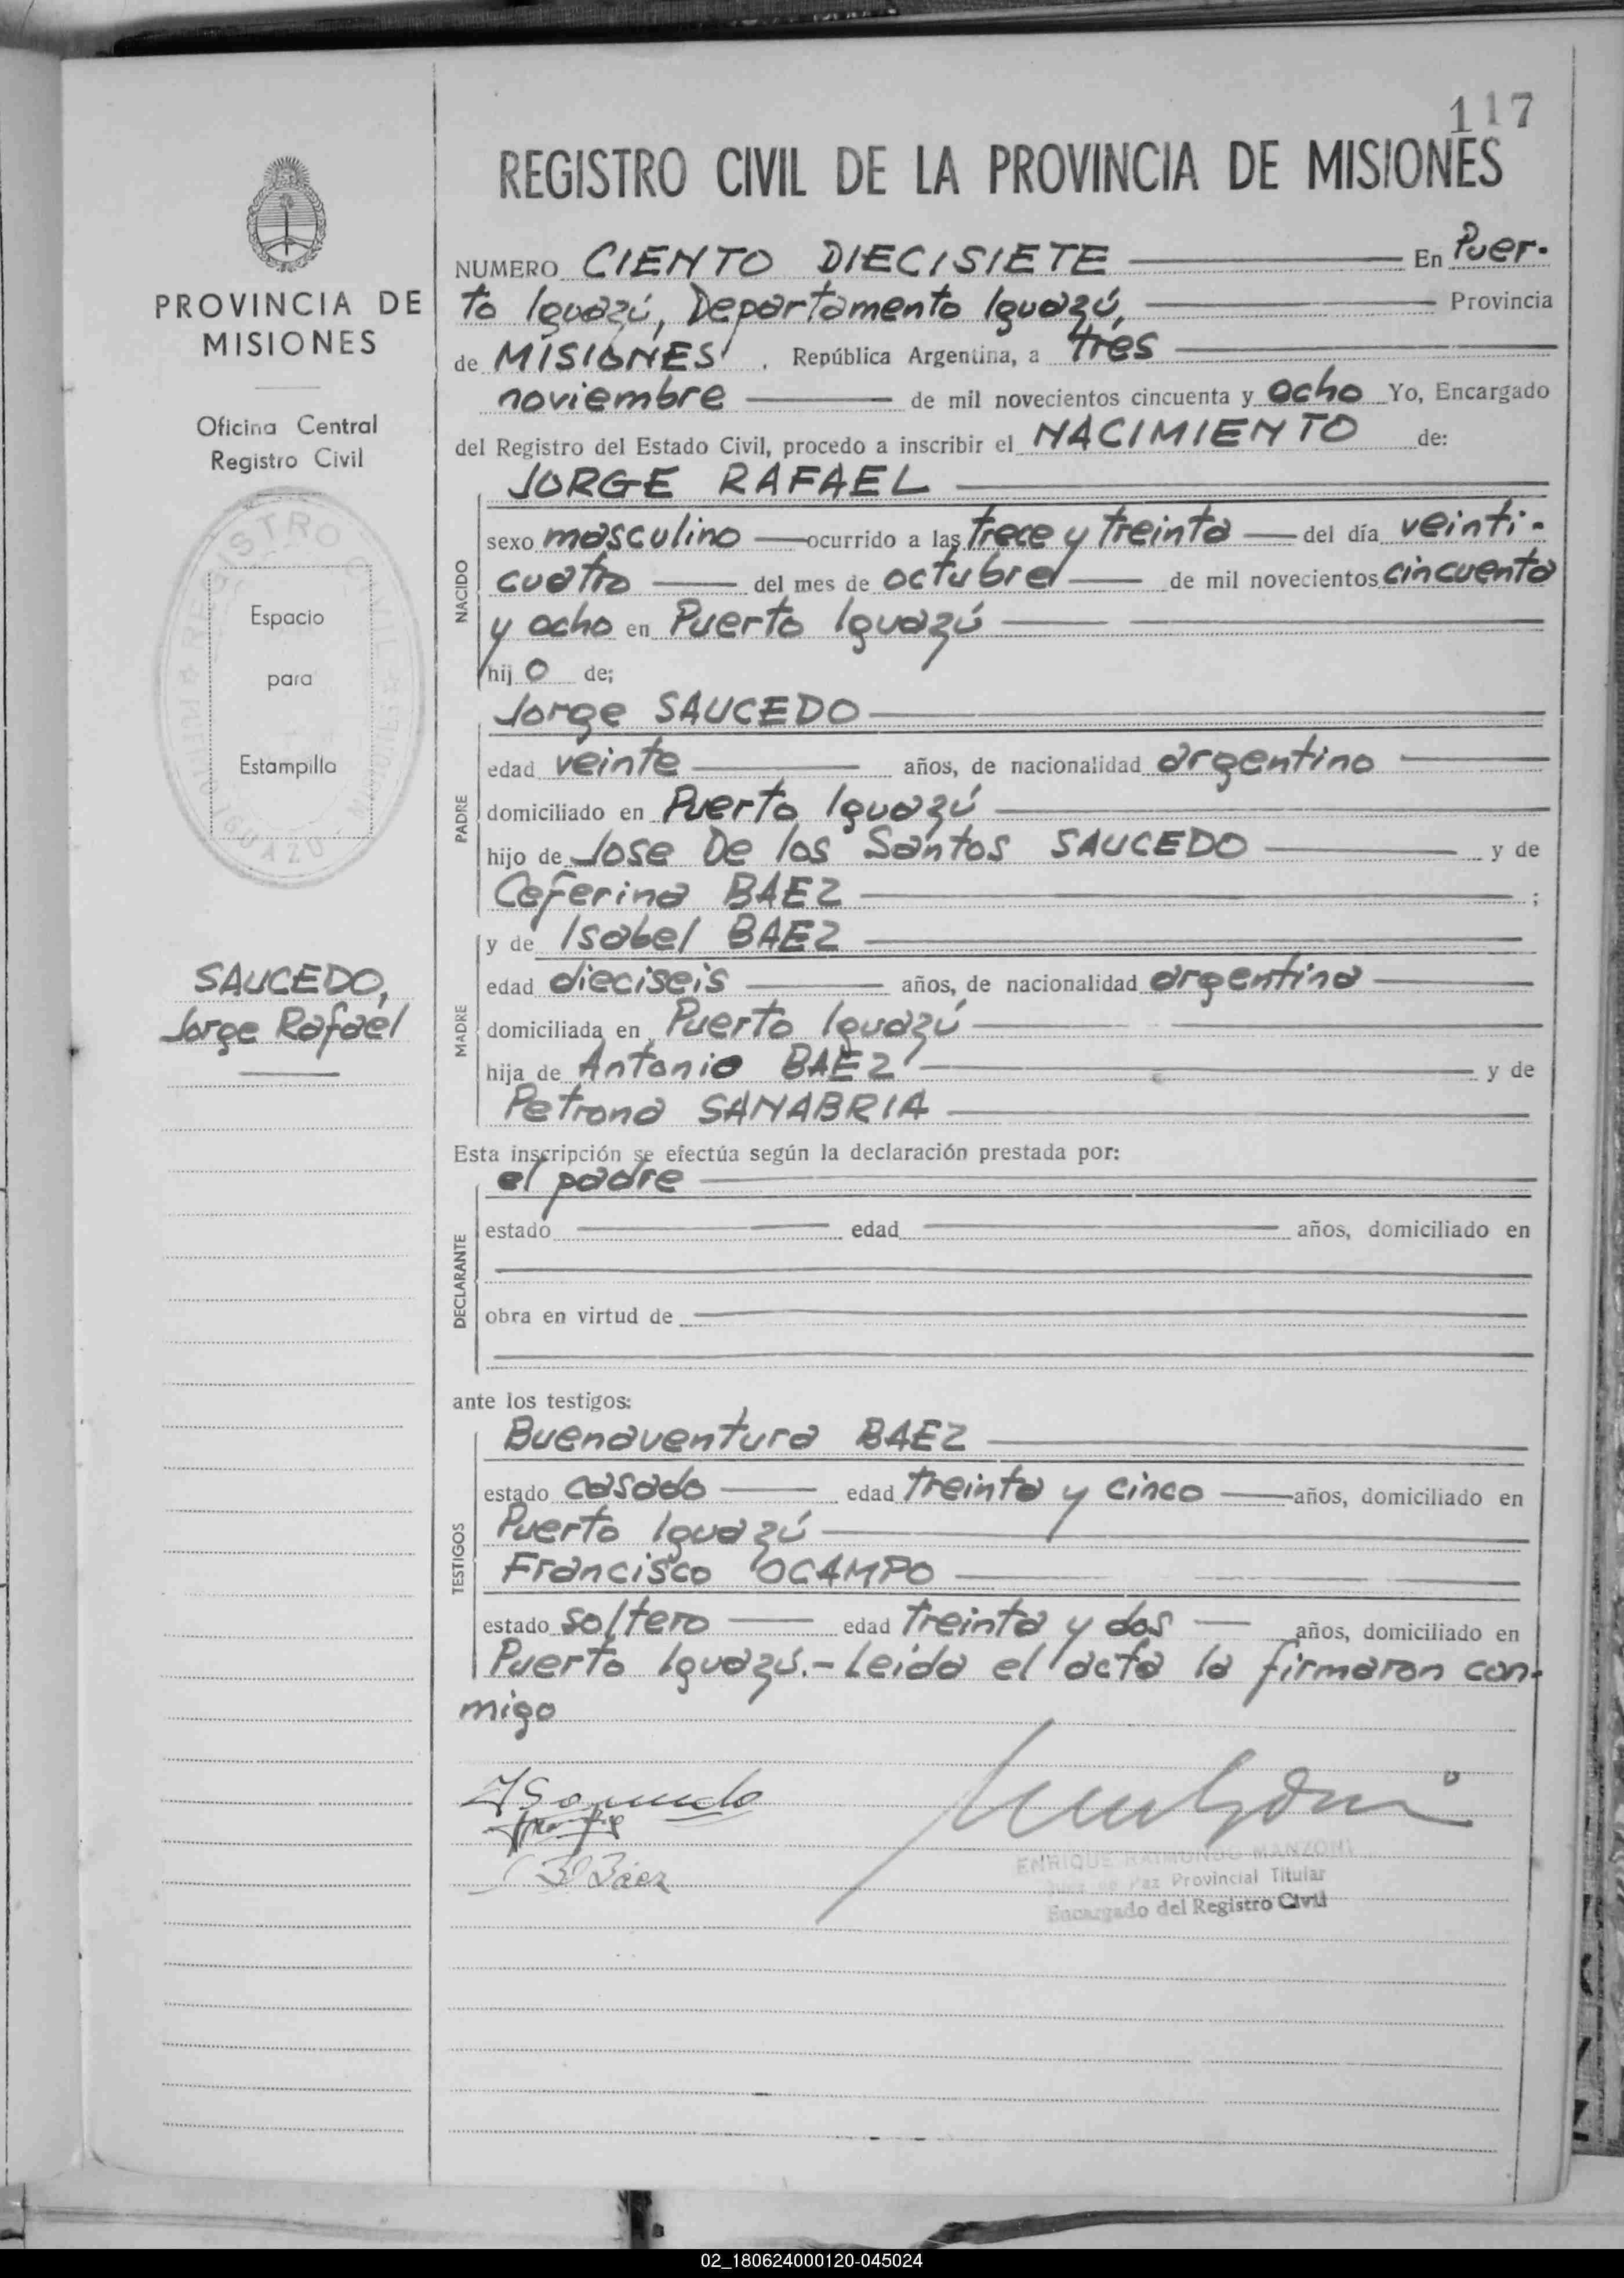 117
REGISTRO CIVIL DE LA PROVINCIA DE MISIONES
PROVINCIA DE
MISIONES
Oficina Central
Registro Civil
Espacio
para
Estampilla
SAUCEDO,
Jorge Rafael
NUMERO CIENTO DIECISIETE En Puer-
to Iguazú, Departamento Iguazú, Provincia
de MISIONES, República Argentina, a tres
noviembre de mil novecientos cincuenta y ocho Yo, Encargado
del Registro del Estado Civil, procedo a inscribir el NACIMIENTO de:
NACIDO
JORGE RAFAEL
sexo masculino ocurrido a las trece y treinta del día veinti-
cuatro del mes de octubre de mil novecientos cincuenta
y ocho en Puerto Iguazú
hijo de;
PADRE
Jorge SAUCEDO
edad veinte años, de nacionalidad argentino
domiciliado en Puerto Iguazú
hijo de Jose De los Santos SAUCEDO y de
Ceferina BAEZ ;
MADRE
y de Isabel BAEZ
edad dieciseis años, de nacionalidad argentina
domiciliada en Puerto Iguazú
hija de Antonio BAEZ y de
Petrona SANABRIA
Esta inscripción se efectúa según la declaración prestada por:
DECLARANTE
el padre
estado edad años, domiciliado en
obra en virtud de
ante los testigos:
TESTIGOS
Buenaventura BAEZ
estado casado edad treinta y cinco años, domiciliado en
Puerto Iguazú
Francisco OCAMPO
estado soltero edad treinta y dos años, domiciliado en
Puerto Iguazú.- Leida el acta la firmaron con-
migo
Báez
ENRIQUE RAIMUNDO MANZONI
Juez de Paz Provincial Titular
Encargado del Registro Civil
02_180624000120-045024